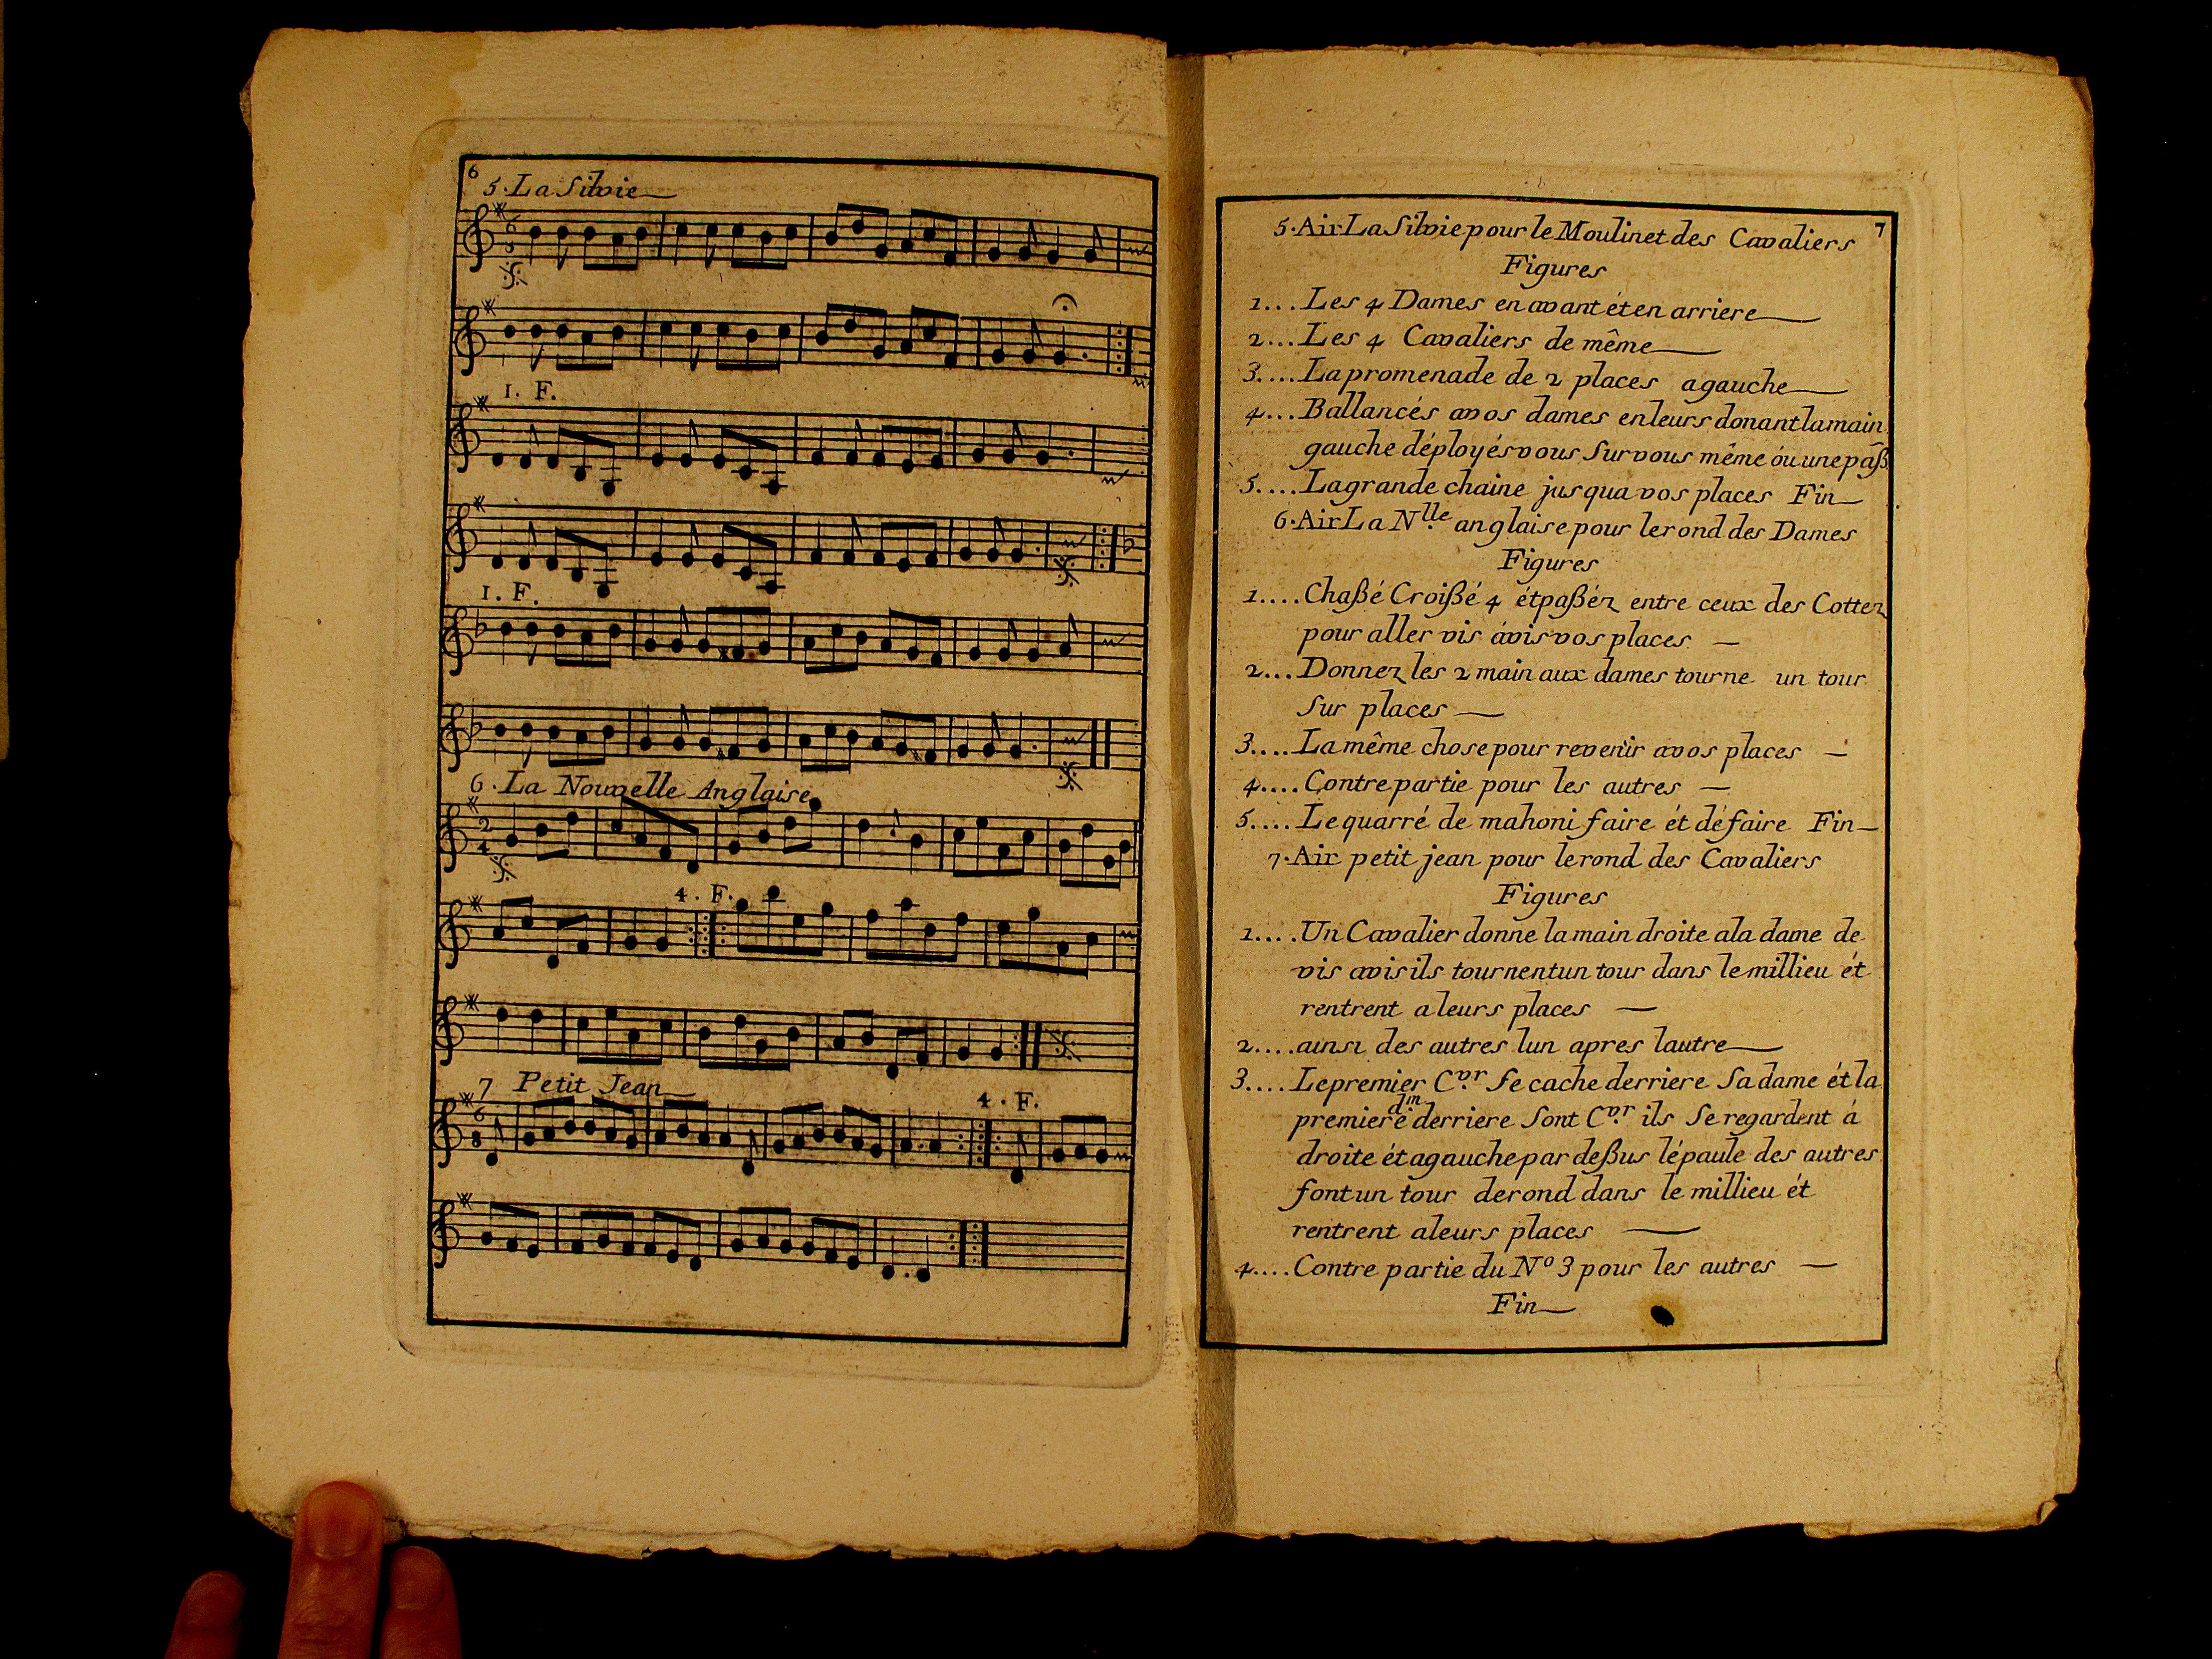 6
5. La Silvie
6
8
1. F.
1. F.
6. La Nouvelle Anglaise
2
4
4. F.
7 Petit Jean
4. F.
6
8
7
5. Air La Silvie pour le Moulinet des Cavaliers
Figures
1... Les 4 Dames en avant ét en arriere
2... Les 4 Cavaliers de même
3.... La promenade de 2 places a gauche
4... Ballancés avos dames en leurs donant la main
gauche déployés vous Sur vous même óu une paß
5.... La grande chaine jusqua vos places Fin
6. Air La Nlle anglaise pour le rond des Dames
Figures
1.... Chaßé Croißé 4 ét paßéz entre ceux des Cottez
pour aller vis ávis vos places
2... Donnez les 2 main aux dames tourne un tour
Sur places
3.... La même chose pour revenir avos places
4.... Contre partie pour les autres
5.... Le quarré de mahoni faire ét défaire Fin
7. Air petit jean pour le rond des Cavaliers
Figures
1.... Un Cavalier donne la main droite ala dame de
vis avis ils tournent un tour dans le millieu ét
rentrent a leurs places
2.... ainsi des autres lun apres lautre
3.... Le premier Cvr Se cache derriere Sa dame ét la
premiere dme derriere Sont Cvr ils Se regardent á
droite ét agauche par deßus lépaule des autres
font un tour de rond dans le millieu ét
rentrent aleurs places
4.... Contre partie du No 3 pour les autres
Fin